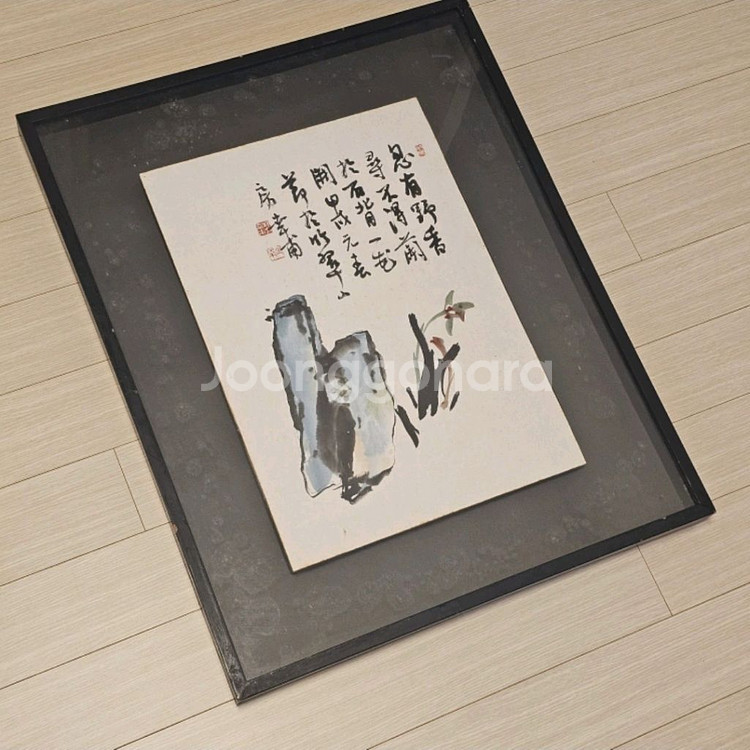 忽有野香
尋不得蘭
於石背一花
開甲戌元春
節於翠山
房
甫
Joonggonara